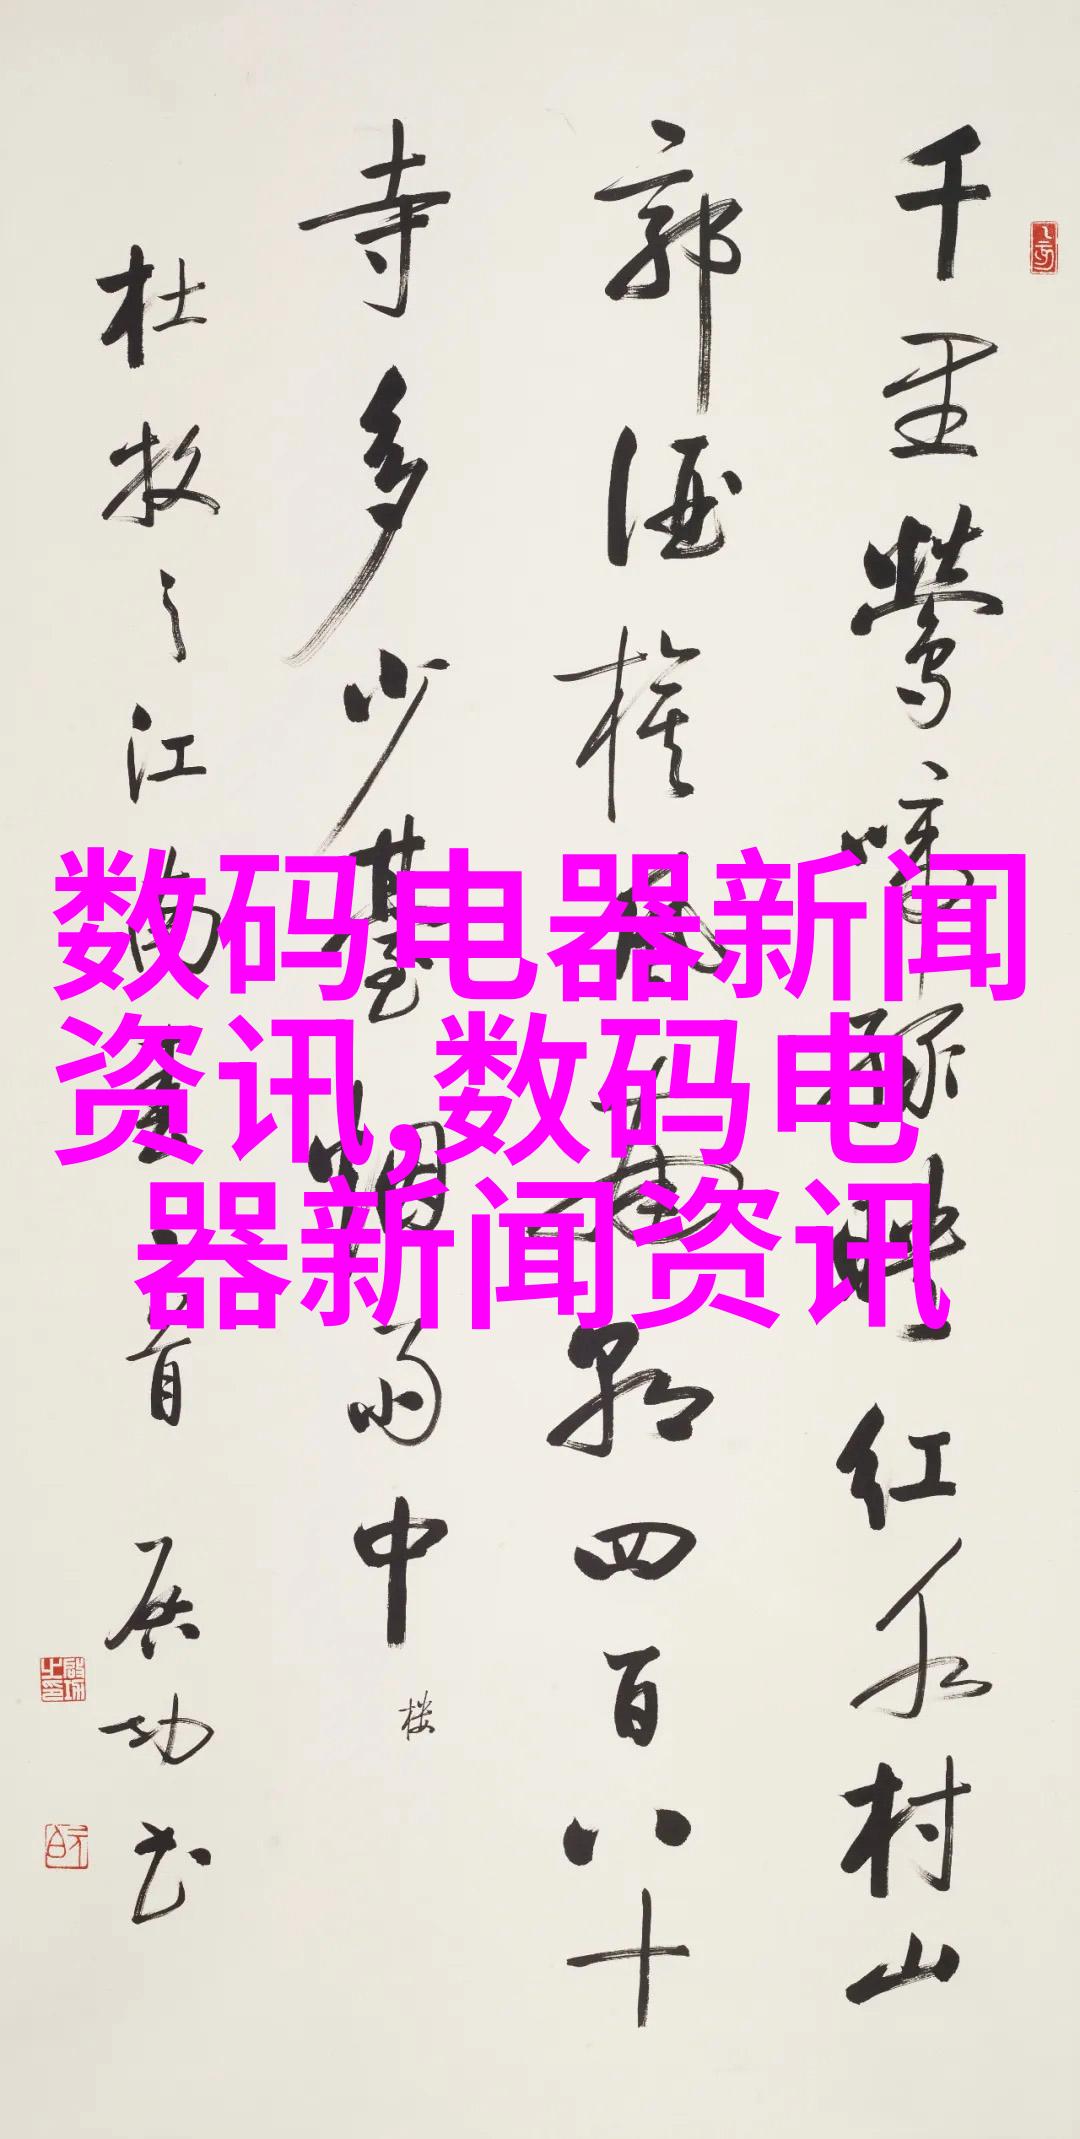 千里鶯啼綠映红水村山
郭酒旗風南朝四百八十
寺多少臺烟雨中
楼
杜牧之江南春一首 启功书
数码电器新闻
资讯,数码电
器新闻资讯